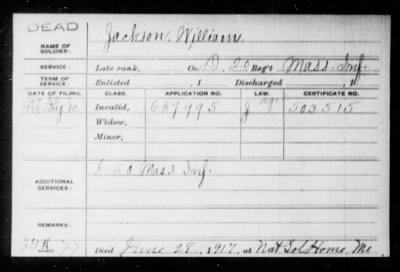 DEAD
NAME OF SOLDIER: Jackson, William
SERVICE: Late rank, Co. D, 20 Reg't Mass Inf.
TERM OF SERVICE: Enlisted , 1 Discharged , 1
DATE OF FILING. CLASS. APPLICATION NO. LAW. CERTIFICATE NO.
Invalid, 667995 503515
Widow,
Minor,
ADDITIONAL SERVICES: 20 Mass Inf.
REMARKS:
Died June 28, 1917, at Nat Sol Home, Me